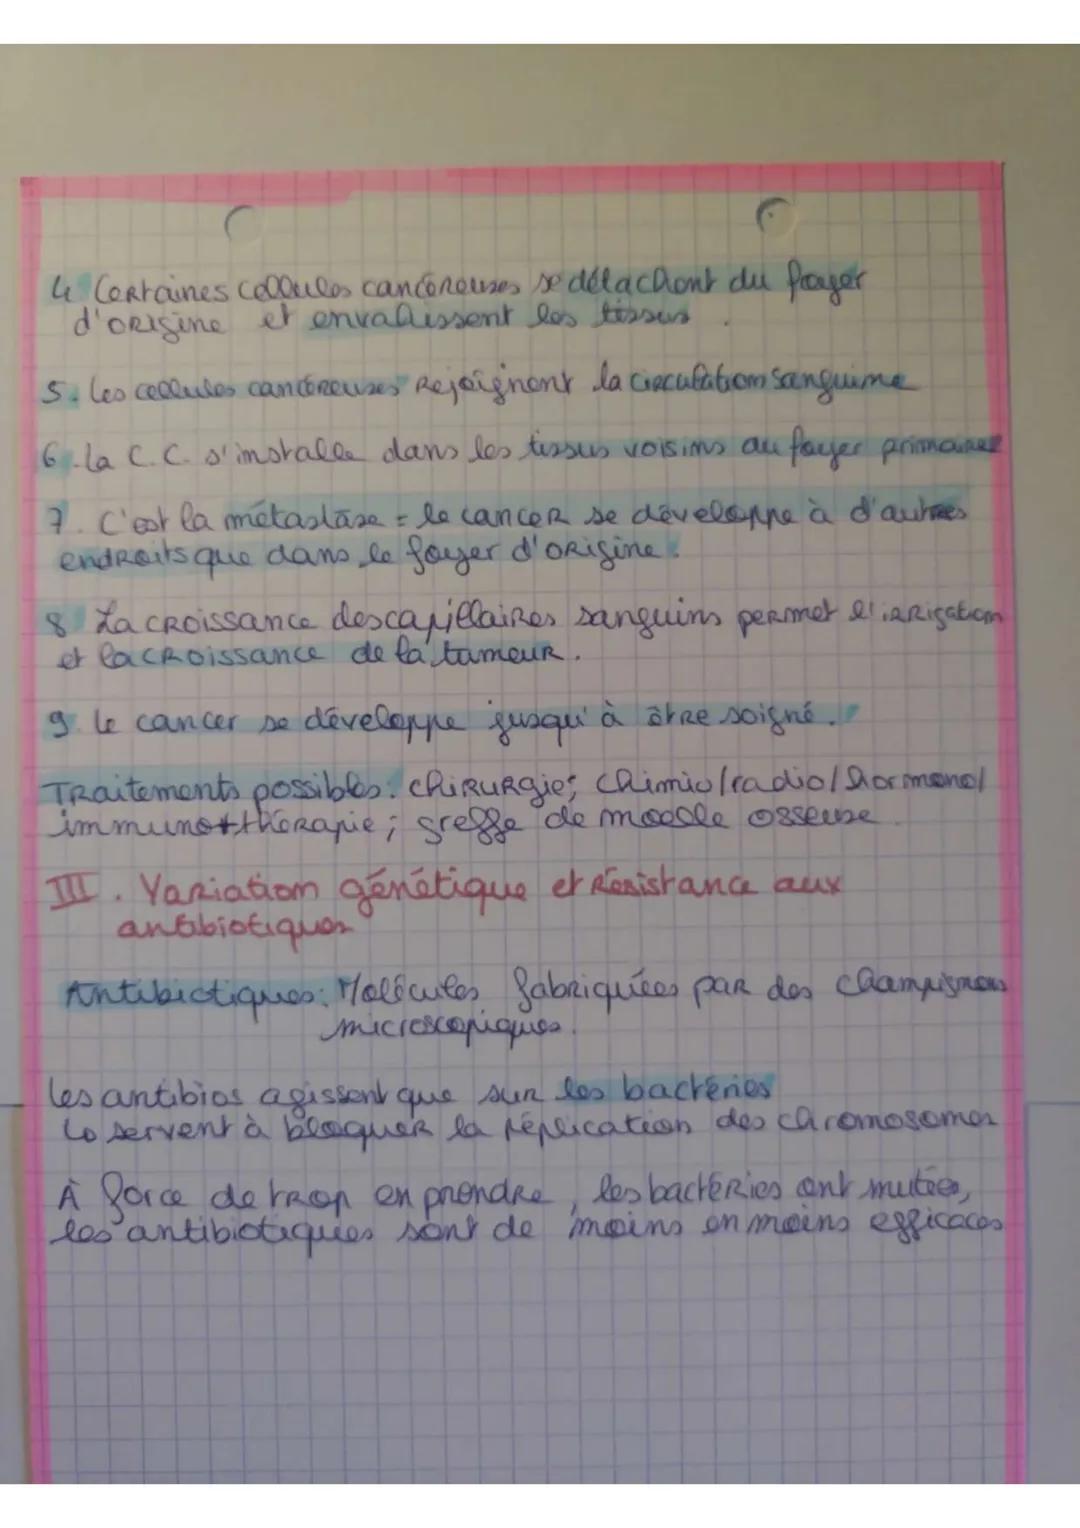 4. Certaines cellules cancéreuses se détachent du foyer
d'origine et envahissent les tissus.
5. Les cellules cancéreuses rejoignent la circulation sanguine
6. La C.C. s'installe dans les tissus voisins au foyer primaire
7. C'est la métastase = le cancer se développe à d'autres
endroits que dans le foyer d'origine.
8 La croissance des capillaires sanguins permet l'irrigation
et la croissance de la tumeur.
9. Le cancer se développe jusqu'à être soigné.
Traitements possibles: chirurgie; chimio/radio/hormono/
immunothérapie; greffe de moelle osseuse
III. Variation génétique et résistance aux
antibiotiques
Antibiotiques: Molécules fabriquées par des champignons
microscopiques.
Les antibios agissent que sur les bactéries
↳ servent à bloquer la réplication des chromosomes
À force de trop en prendre, les bactéries ont mutées,
les antibiotiques sont de moins en moins efficaces